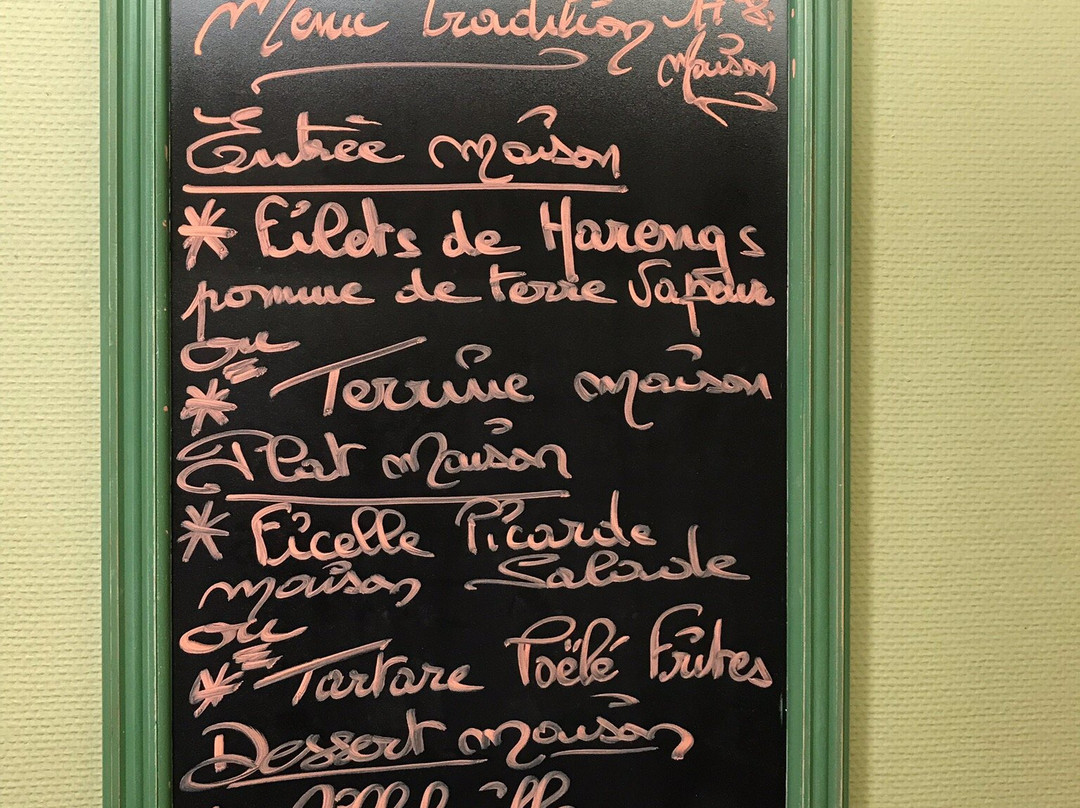 Menu tradition
Maison
Entrée maison
* Filets de Harengs
pomme de terre Vapeur
ou
* Terrine maison
Plat maison
* Ficelle Picarde
maison Salade
ou
* Tartare Poëlé Frites
Dessert maison